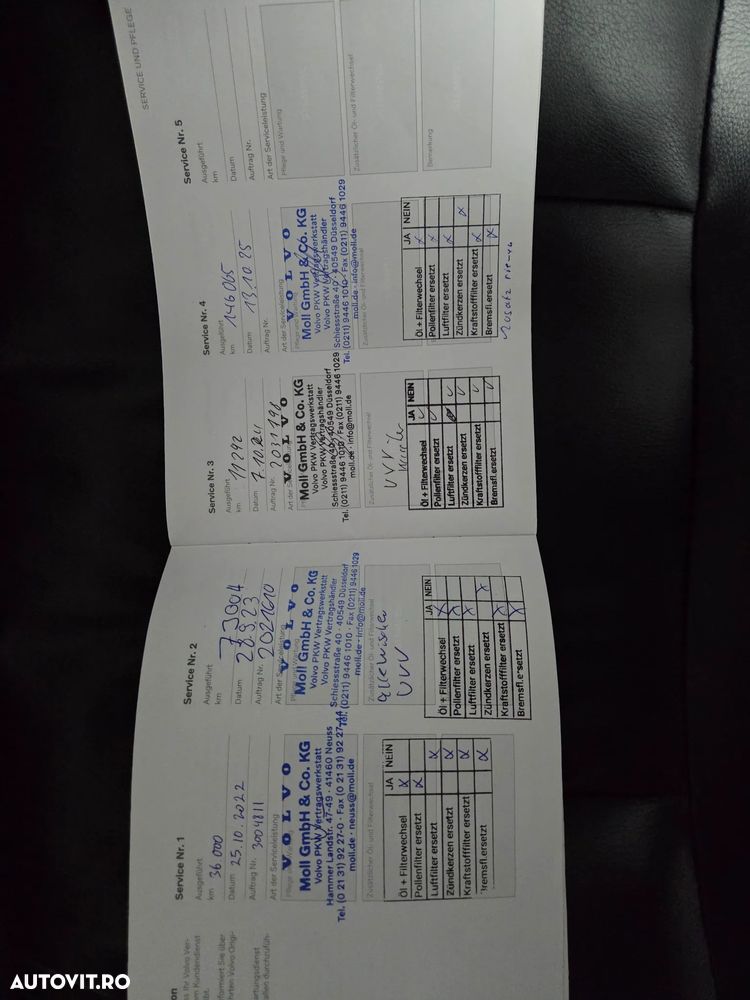 SERVICE UND PFLEGE
Service Nr. 1
Ausgeführt
km 36 000
Datum 25.10.2022
Auftrag Nr. 3004811
Art der Serviceleistung
VOLVO
Moll GmbH & Co. KG
Volvo PKW Vertragswerkstatt
Hammer Landstr. 47-49 · 41460 Neuss
Tel. (0 21 31) 92 27-0 · Fax (0 21 31) 92 27-44
moll.de · neuss@moll.de
Zusätzlicher Öl- und Filterwechsel
JA NEIN
Öl + Filterwechsel X
Pollenfilter ersetzt X
Luftfilter ersetzt X
Zündkerzen ersetzt X
Kraftstofffilter ersetzt X
Bremsfl.ersetzt X
Service Nr. 2
Ausgeführt
km 73004
Datum 28.9.23
Auftrag Nr. 2021610
Art der Serviceleistung
Pflege und Wartung
VOLVO
Moll GmbH & Co. KG
Volvo PKW Vertragswerkstatt
Volvo PKW Vertragshändler
Schiessstraße 40 · 40549 Düsseldorf
Tel. (0211) 9446 1010 · Fax (0211) 9446 1029
moll.de · info@moll.de
Zusätzlicher Öl- und Filterwechsel
UVV
JA NEIN
Öl + Filterwechsel X
Pollenfilter ersetzt X
Luftfilter ersetzt X
Zündkerzen ersetzt X
Kraftstofffilter ersetzt X
Bremsfl.ersetzt X
Service Nr. 3
Ausgeführt
km
Datum
Auftrag Nr. 2031198
Art der Serviceleistung
VOLVO
Moll GmbH & Co. KG
Volvo PKW Vertragswerkstatt
Volvo PKW Vertragshändler
Schiessstraße 40 · 40549 Düsseldorf
Tel. (0211) 9446 1010 · Fax (0211) 9446 1029
moll.de · info@moll.de
Zusätzlicher Öl- und Filterwechsel
UVV
JA NEIN
Öl + Filterwechsel
Pollenfilter ersetzt
Luftfilter ersetzt
Zündkerzen ersetzt
Kraftstofffilter ersetzt
Bremsfl.ersetzt
Service Nr. 4
Ausgeführt
km 146065
Datum 13.10.25
Auftrag Nr.
Art der Serviceleistung
Pflege und Wartung
VOLVO
Moll GmbH & Co. KG
Volvo PKW Vertragswerkstatt
Volvo PKW Vertragshändler
Schiessstraße 40 · 40549 Düsseldorf
Tel. (0211) 9446 1010 · Fax (0211) 9446 1029
moll.de · info@moll.de
Zusätzlicher Öl- und Filterwechsel
JA NEIN
Öl + Filterwechsel X
Pollenfilter ersetzt X
Luftfilter ersetzt X
Zündkerzen ersetzt X
Kraftstofffilter ersetzt X
Bremsfl.ersetzt X
Zusatz
Service Nr. 5
Ausgeführt
km
Datum
Auftrag Nr.
Art der Serviceleistung
Pflege und Wartung
Zusätzlicher Öl- und Filterwechsel
Bemerkung
AUTOVIT.RO